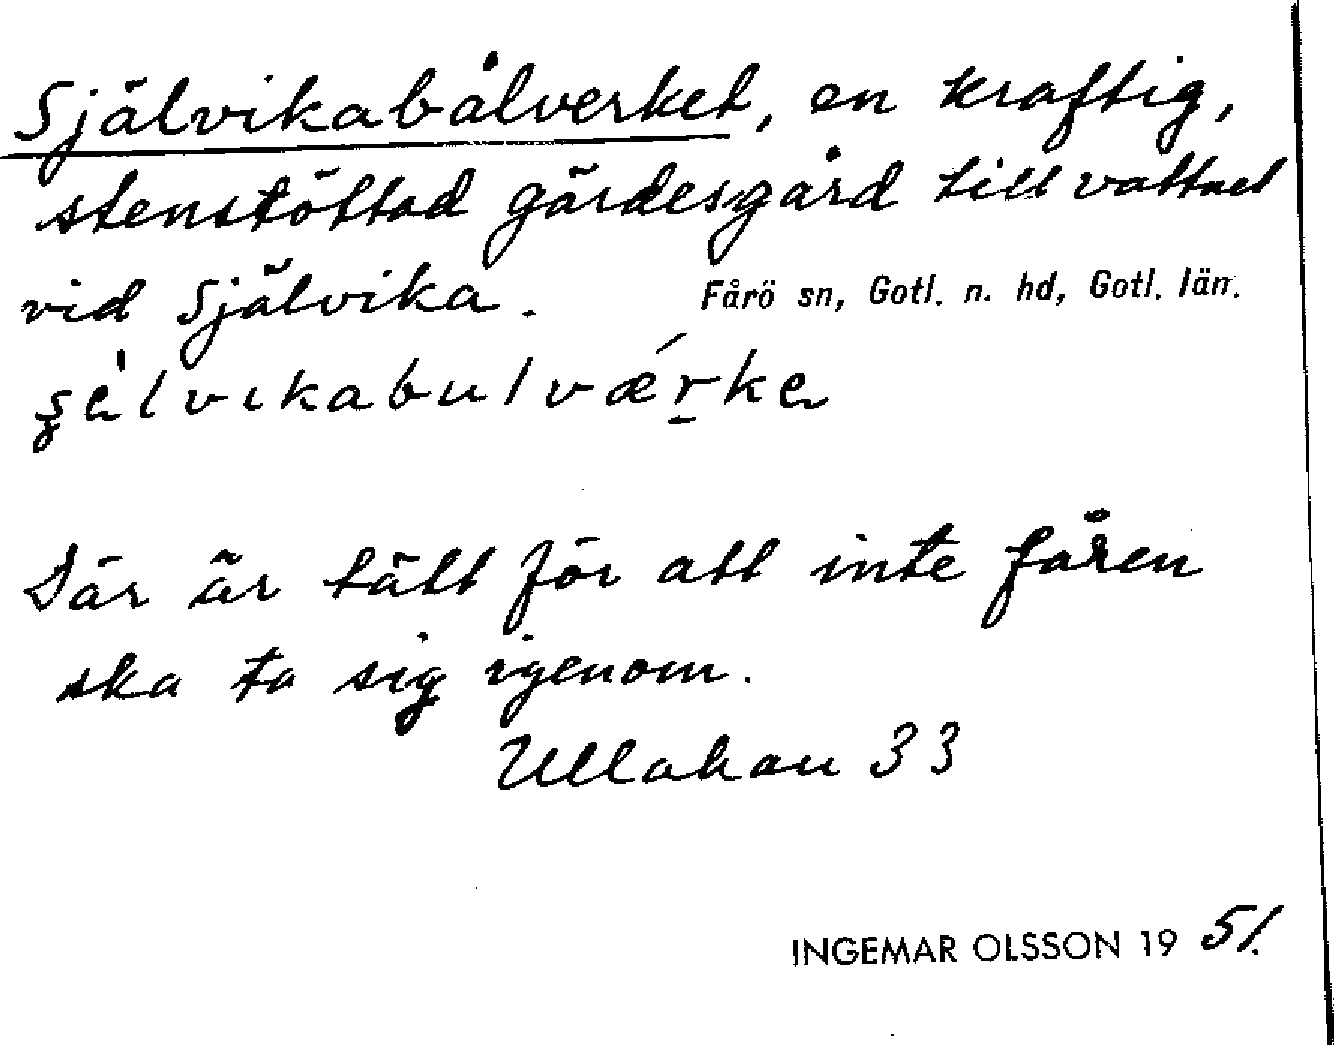 Självikabålverket, en kraftig,
stenstöttad gärdesgård till vattnet
vid Självika. Fårö sn, Gotl. n. hd, Gotl. län.
şèlvıkabulvǽrke
Där är tätt för att inte fåren
ska ta sig igenom.
Ullahau 33
INGEMAR OLSSON 19 51.